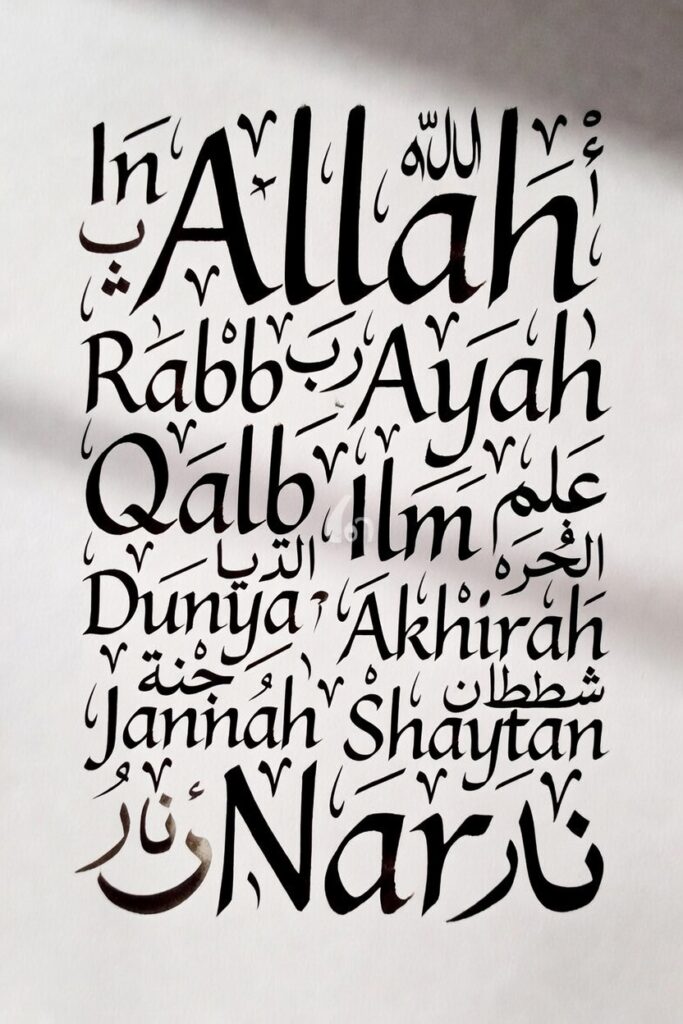 In Allah الله
ب
Rabb رَب Ayah
Qalb Ilm علم
الديا الحُره
Dunya Akhirah
جنة شططان
Jannah Shaytan
نارُ Nar نار